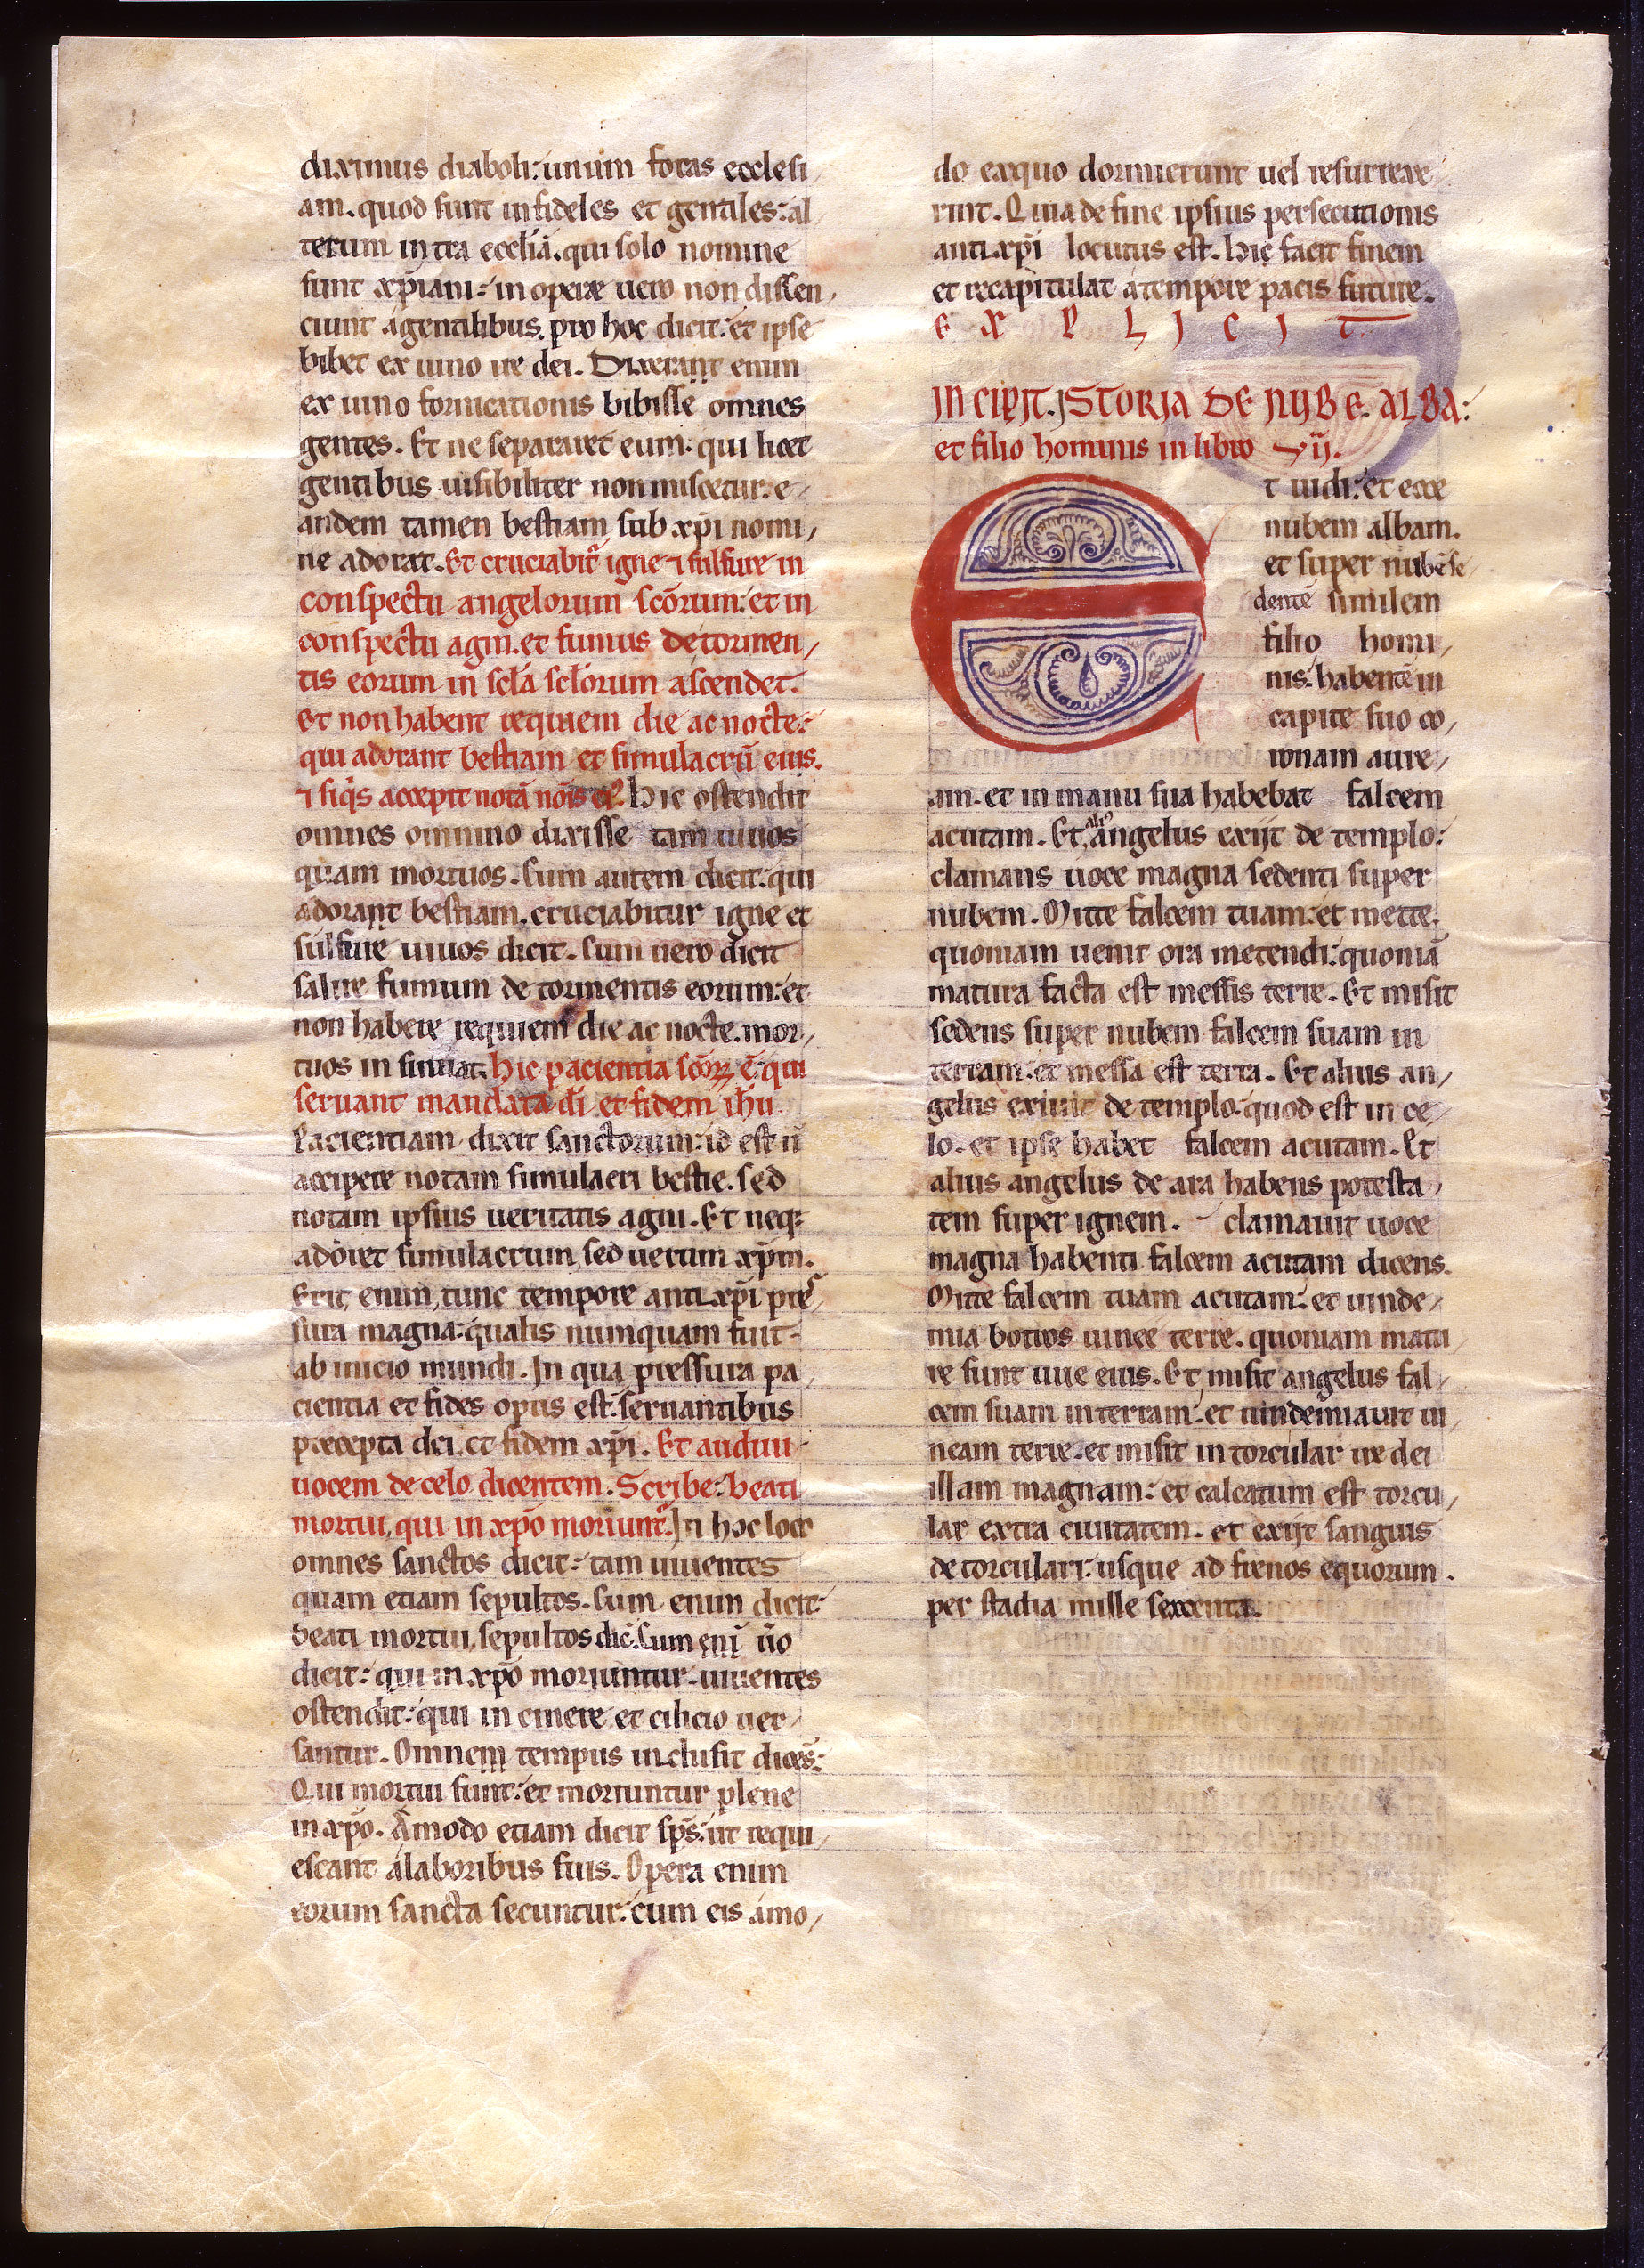 diximus diaboli: unum foras ecclesi/
am. quod sunt infideles et gentiles: al
terum intra eccliã. qui solo nomine
sunt xp̃iani: in opere uero non dissen/
ciunt agentilibus. pro hoc dicit: et ipse
bibet ex uino ire dei. Dixerant enim
ex uino fornicationis bibisse omnes
gentes. Et ne separaret eum: qui licet
gentibus uisibiliter non miscetur: e/
andem tamen bestiam sub xp̃i nomi/
ne adorat. Et cruciabit̃ igne ⁊ sulfure in
conspectu angelorum sc̃orum: et in
conspectu agni. et fumus de tormen/
tis eorum in scl̃a scl̃orum ascendet.
Et non habent requiem die ac nocte:
qui adorant bestiam et simulacrũ eius.
⁊ siq̃s accepit notã nõis ei᷒. Hic ostendit
omnes omnino dixisse tam uiuos
quam mortuos. Cum autem dicit: qui
adorant bestiam, cruciabitur igne et
sulfure uiuos dicit. Cum uero dicit
salire fumum de tormentis eorum: et
non habere requiem die ac nocte. mor/
tuos insinuat. hic paciencia sc̃oꝝ ẽ: qui
seruant mandata dĩ et fidem ih̃u.
Pacientiam dixit sanctorum: id est ñ
accipere notam simulacri bestie. sed
notam ipsius ueritatis agni. Et neq;
adoret simulacrum, sed uerum xp̃m.
Erit enim, tunc tempore antixp̃i pres/
sura magna: qualis numquam fuit
ab inicio mundi. In qua pressura pa/
cientia et fides opus est: seruantibus
precepta dei, et fidem xp̃i. Et audiui
uocem de celo dicentem. Scribe: beati
mortui, qui in xp̃o moriunt̃. In hoc loco
omnes sanctos dicit: tam uiuentes
quam etiam sepultos. Cum enim dicit:
beati mortui, sepultos dic̃. Cum enĩ ũo
dicit: qui in xp̃o moriuntur. uiuentes
ostendit: qui in cinere et cilicio uer/
santur. Omnem tempus inclusit dicẽs:
Qui mortui sunt: et moriuntur plene
in xp̃o. Amodo etiam dicit sp̃s: ut requi/
escant alaboribus suis. Opera enim
eorum sancta secuntur: cum eis amo/
do exquo dormierunt uel resurrexe/
rint. Quia de fine ipsius persecutionis
antixp̃i locutus est. Hic facit finem
et recapitulat atempore pacis future.
E X P L I C I T.
INCIPIT. ISTORIA DE NUBE. ALBA:
et filio hominis in libro VII.
Et uidi: et ecce
nubem albam.
et super nubẽ se/
dentẽ similem
filio homi/
nis. habentẽ in
capite suo co/
ronam aure/
am. et in manu sua habebat falcem
acutam. Et ali᷒ angelus exijt de templo:
clamans uoce magna sedenti super
nubem. Mitte falcem tuam: et mette:
quoniam uenit ora metendi: quoniã
matura facta est messis terre. Et misit
sedens super nubem falcem suam in
terram: et messa est terra. Et alius an/
gelus exiuit de templo. quod est in ce/
lo. et ipse habet falcem acutam. Et
alius angelus de ara habens potesta/
tem super ignem. clamauit uoce
magna habenti falcem acutam dicens.
Mitte falcem tuam acutam: et uinde/
mia botros uinee terre. quoniam matu/
re sunt uue eius. Et misit angelus fal/
cem suam in terram: et uindemiauit ui/
neam terre. et misit in torcular ire dei
illam magnam: et calcatum est torcu/
lar extra ciuitatem. et exijt sanguis
de torculari: usque ad frenos equorum.
per stadia mille sexcenta.